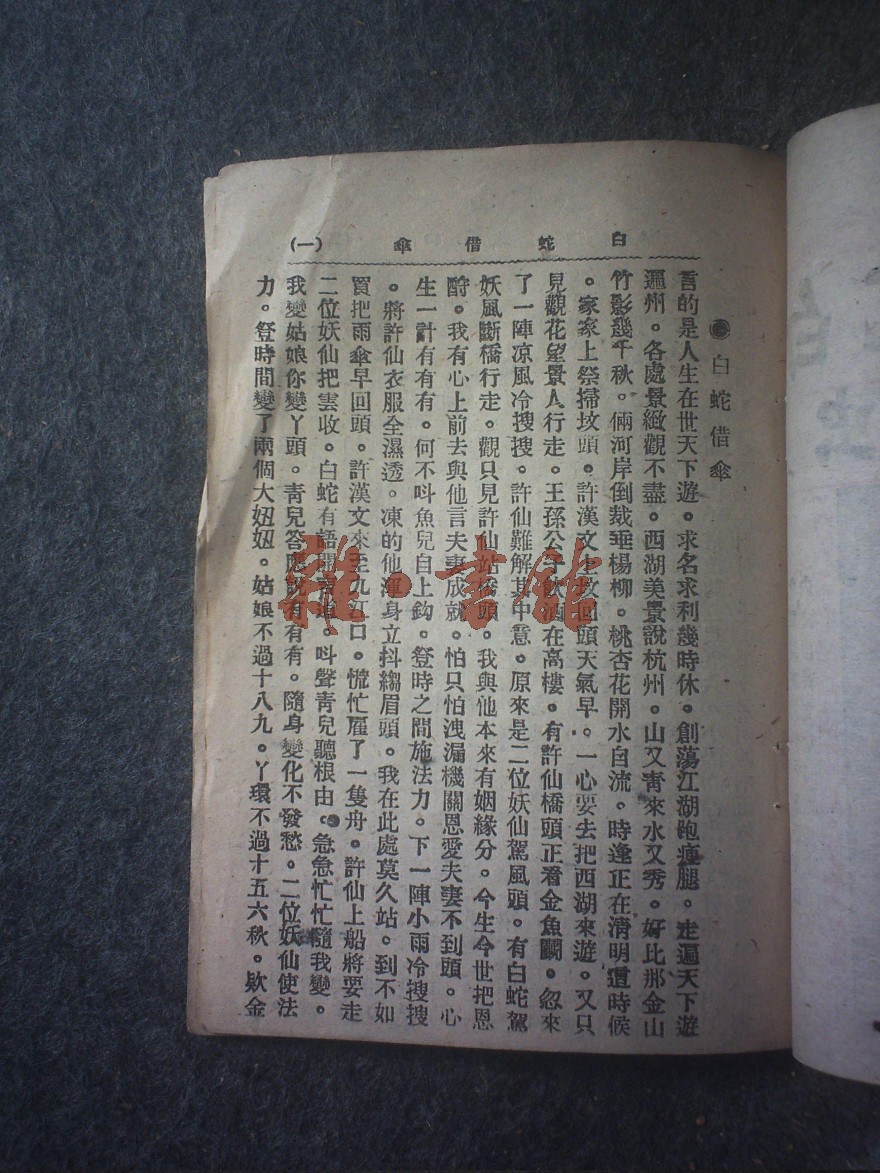 白蛇借傘 (一)
白蛇借傘
言的是人生在世天下遊。求名求利幾時休。創蕩江湖跑瘦腿。走遍天下遊
遍州。各處景緻觀不盡。西湖美景說杭州。山又青來水又秀。好比那金山
竹影幾千秋。倆河岸倒栽垂楊柳。桃杏花開水自流。時逢正在清明這時候
。家家上祭掃坟頭。許漢文上坟回頭天氣早。一心要去把西湖來遊。又只
見觀花望景人行走。王孫公子飲酒在高樓。有許仙橋頭正看金魚鬭。忽來
了一陣凉風冷搜搜。許仙難解其中意。原來是二位妖仙駕風頭。有白蛇駕
妖風斷橋行走。觀只見許仙站橋頭。我與他本來有姻緣分。今生今世把恩
酧。我有心上前去與他言夫妻成就。怕只怕洩漏機關恩愛夫妻不到頭。心
生一計有有有。何不呌魚兒自上鈎。登時之間施法力。下一陣小雨冷搜搜
。將許仙衣服全濕透。凍的他渾身立抖縐眉頭。我在此處莫久站。到不如
買把雨傘早回頭。許漢文來至九江口。慌忙雇了一隻舟。許仙上船將要走
二位妖仙把雲收。白蛇有語開言道。呌聲青兒聽根由。急急忙忙隨我變。
我變姑娘你變丫頭。青兒答應說有有有。隨身變化不發愁。二位妖仙使法
力。登時間變了兩個大妞妞。姑娘不過十八九。丫環不過十五六秋。欵金
雜·書館